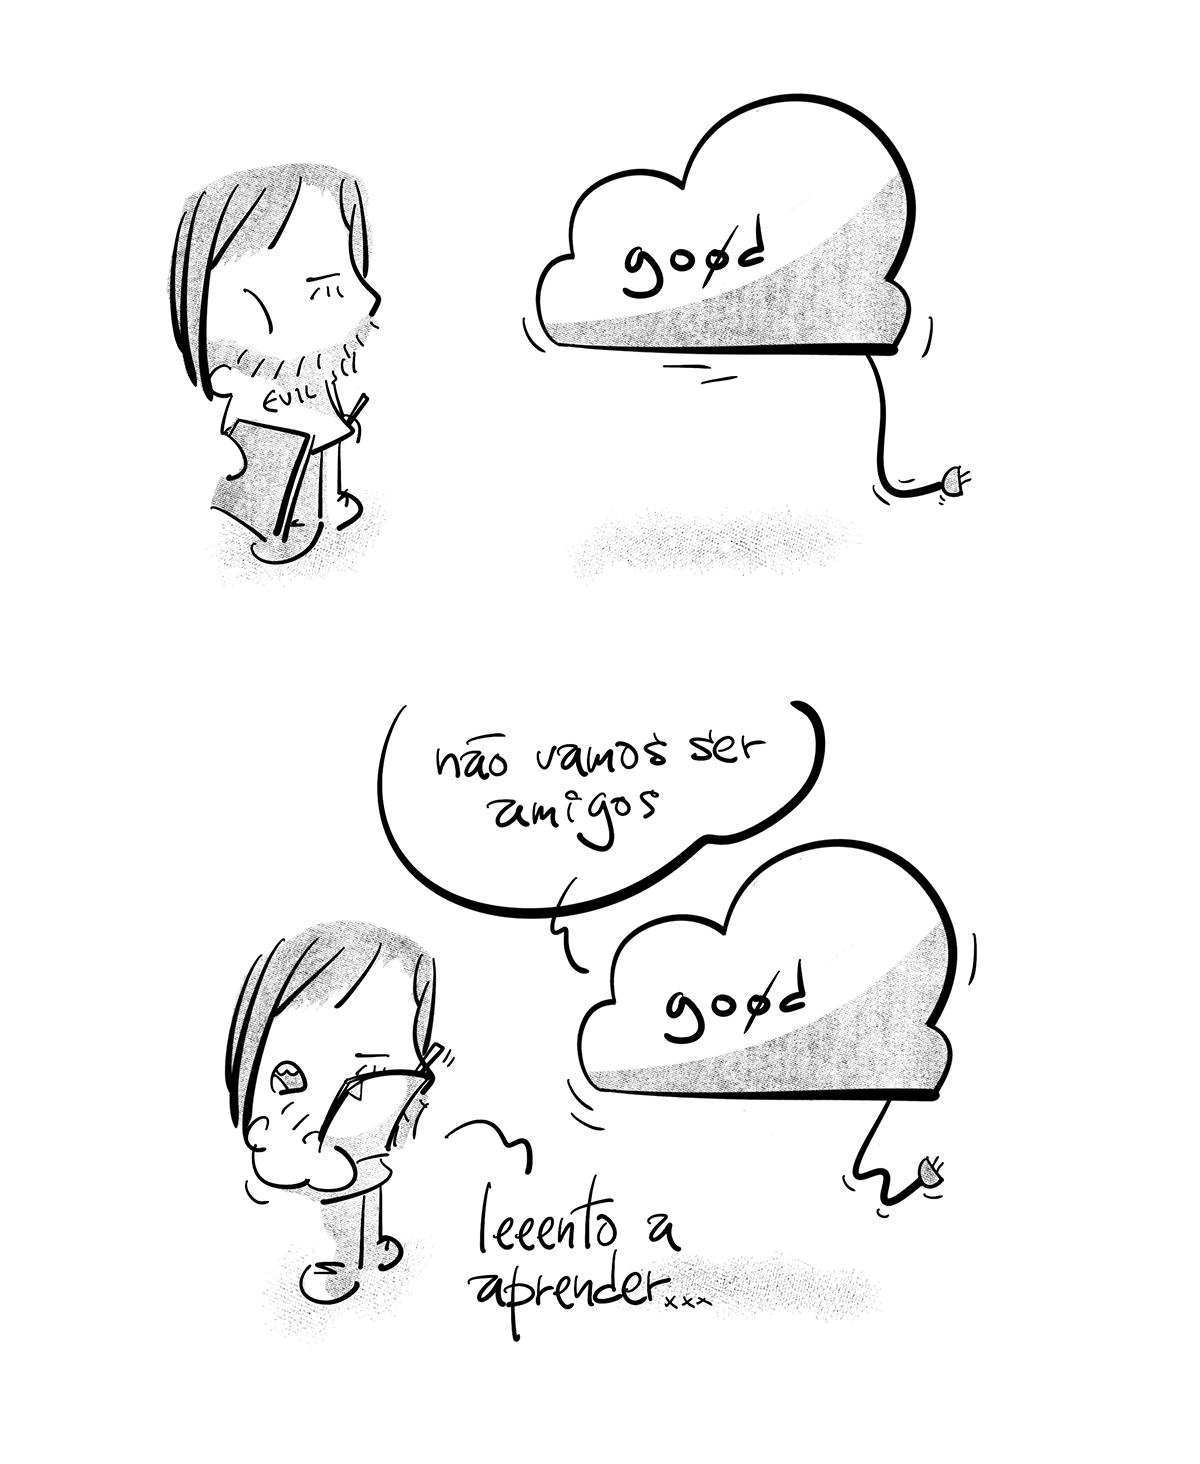 EVIL
good
não vamos ser
amigos
good
leeento a
aprender...